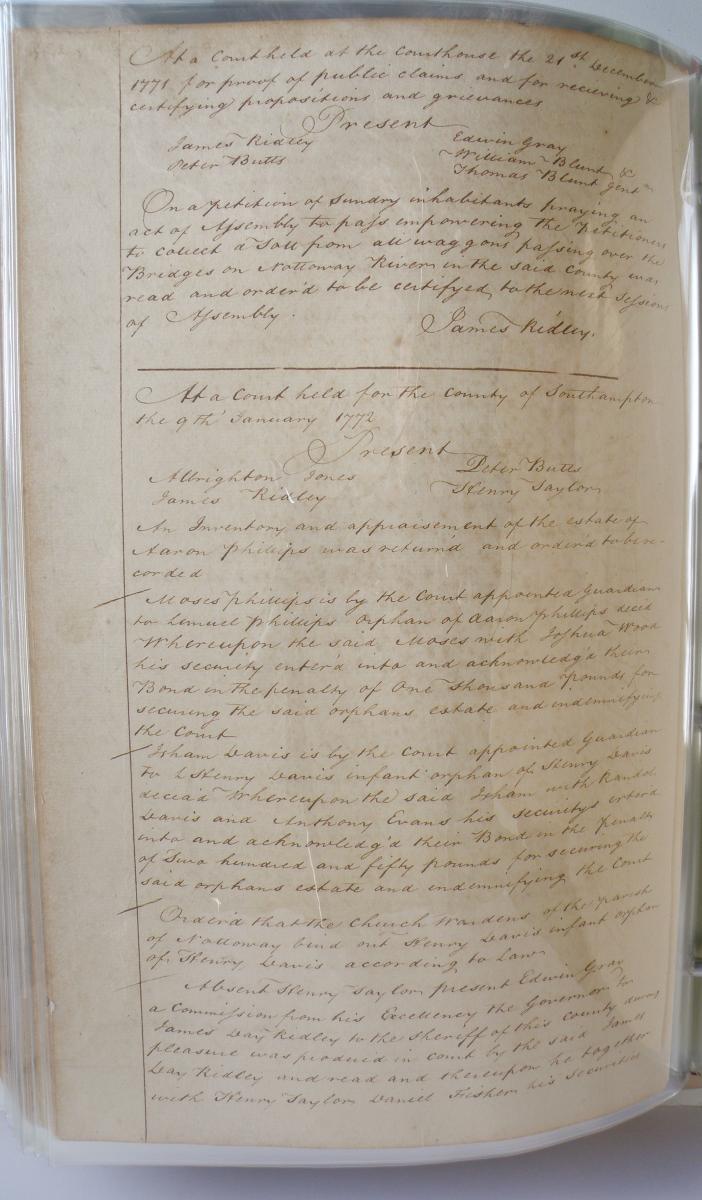 At a Court held at the Courthouse the 21st December
1771 for proof of public claims and for recieving &
certifying propositions and grievances
Present
James Ridley
Peter Butts
Edwin Gray
William Blunt &
Thomas Blunt Gent
On a petition of sundry inhabitants praying an
act of Assembly to pass empowering the Petitioners
to collect a Toll from all waggons passing over the
Bridges on Nottoway River in the said County was
read and order'd to be certifyed to the next Session
of Assembly.
James Ridley.
At a Court held for the County of Southampton
the 9th January 1772
Present
Albrighton Jones
James Ridley
Peter Butts
Henry Taylor
An Inventory and appraisement of the estate of
Aaron Phillips was return'd and order'd to be re-
corded
Moses Phillips is by the Court appointed Guardian
to Lemuel Phillips orphan of Aaron Phillips deced
Whereupon the said Moses with Joshua Wood
his security enter'd into and acknowledg'd their
Bond in the penalty of One thousand pounds for
securing the said orphans estate and indemnifying
the Court
Isham Davis is by the Court appointed Guardian
to Henry Davis infant orphan of Henry Davis
deceas'd Whereupon the said Isham with Randol
Davis and Anthony Evans his securitys enterd
into and acknowledg'd their Bond in the penalty
of Two hundred and fifty pounds for securing the
said orphans estate and indemnifying the Court
Order'd that the Church Wardens of the parish
of Nottoway bind out Henry Davis infant orphan
of Henry Davis according to Law
Absent Henry Taylor present Edwin Gray
a Commission from his Excellency the Governor to
James Day Ridley to the Sheriff of this County during
pleasure was produced in Court by the said James
Day Ridley and read and thereupon he together
with Henry Taylor Daniel Fisher his securities